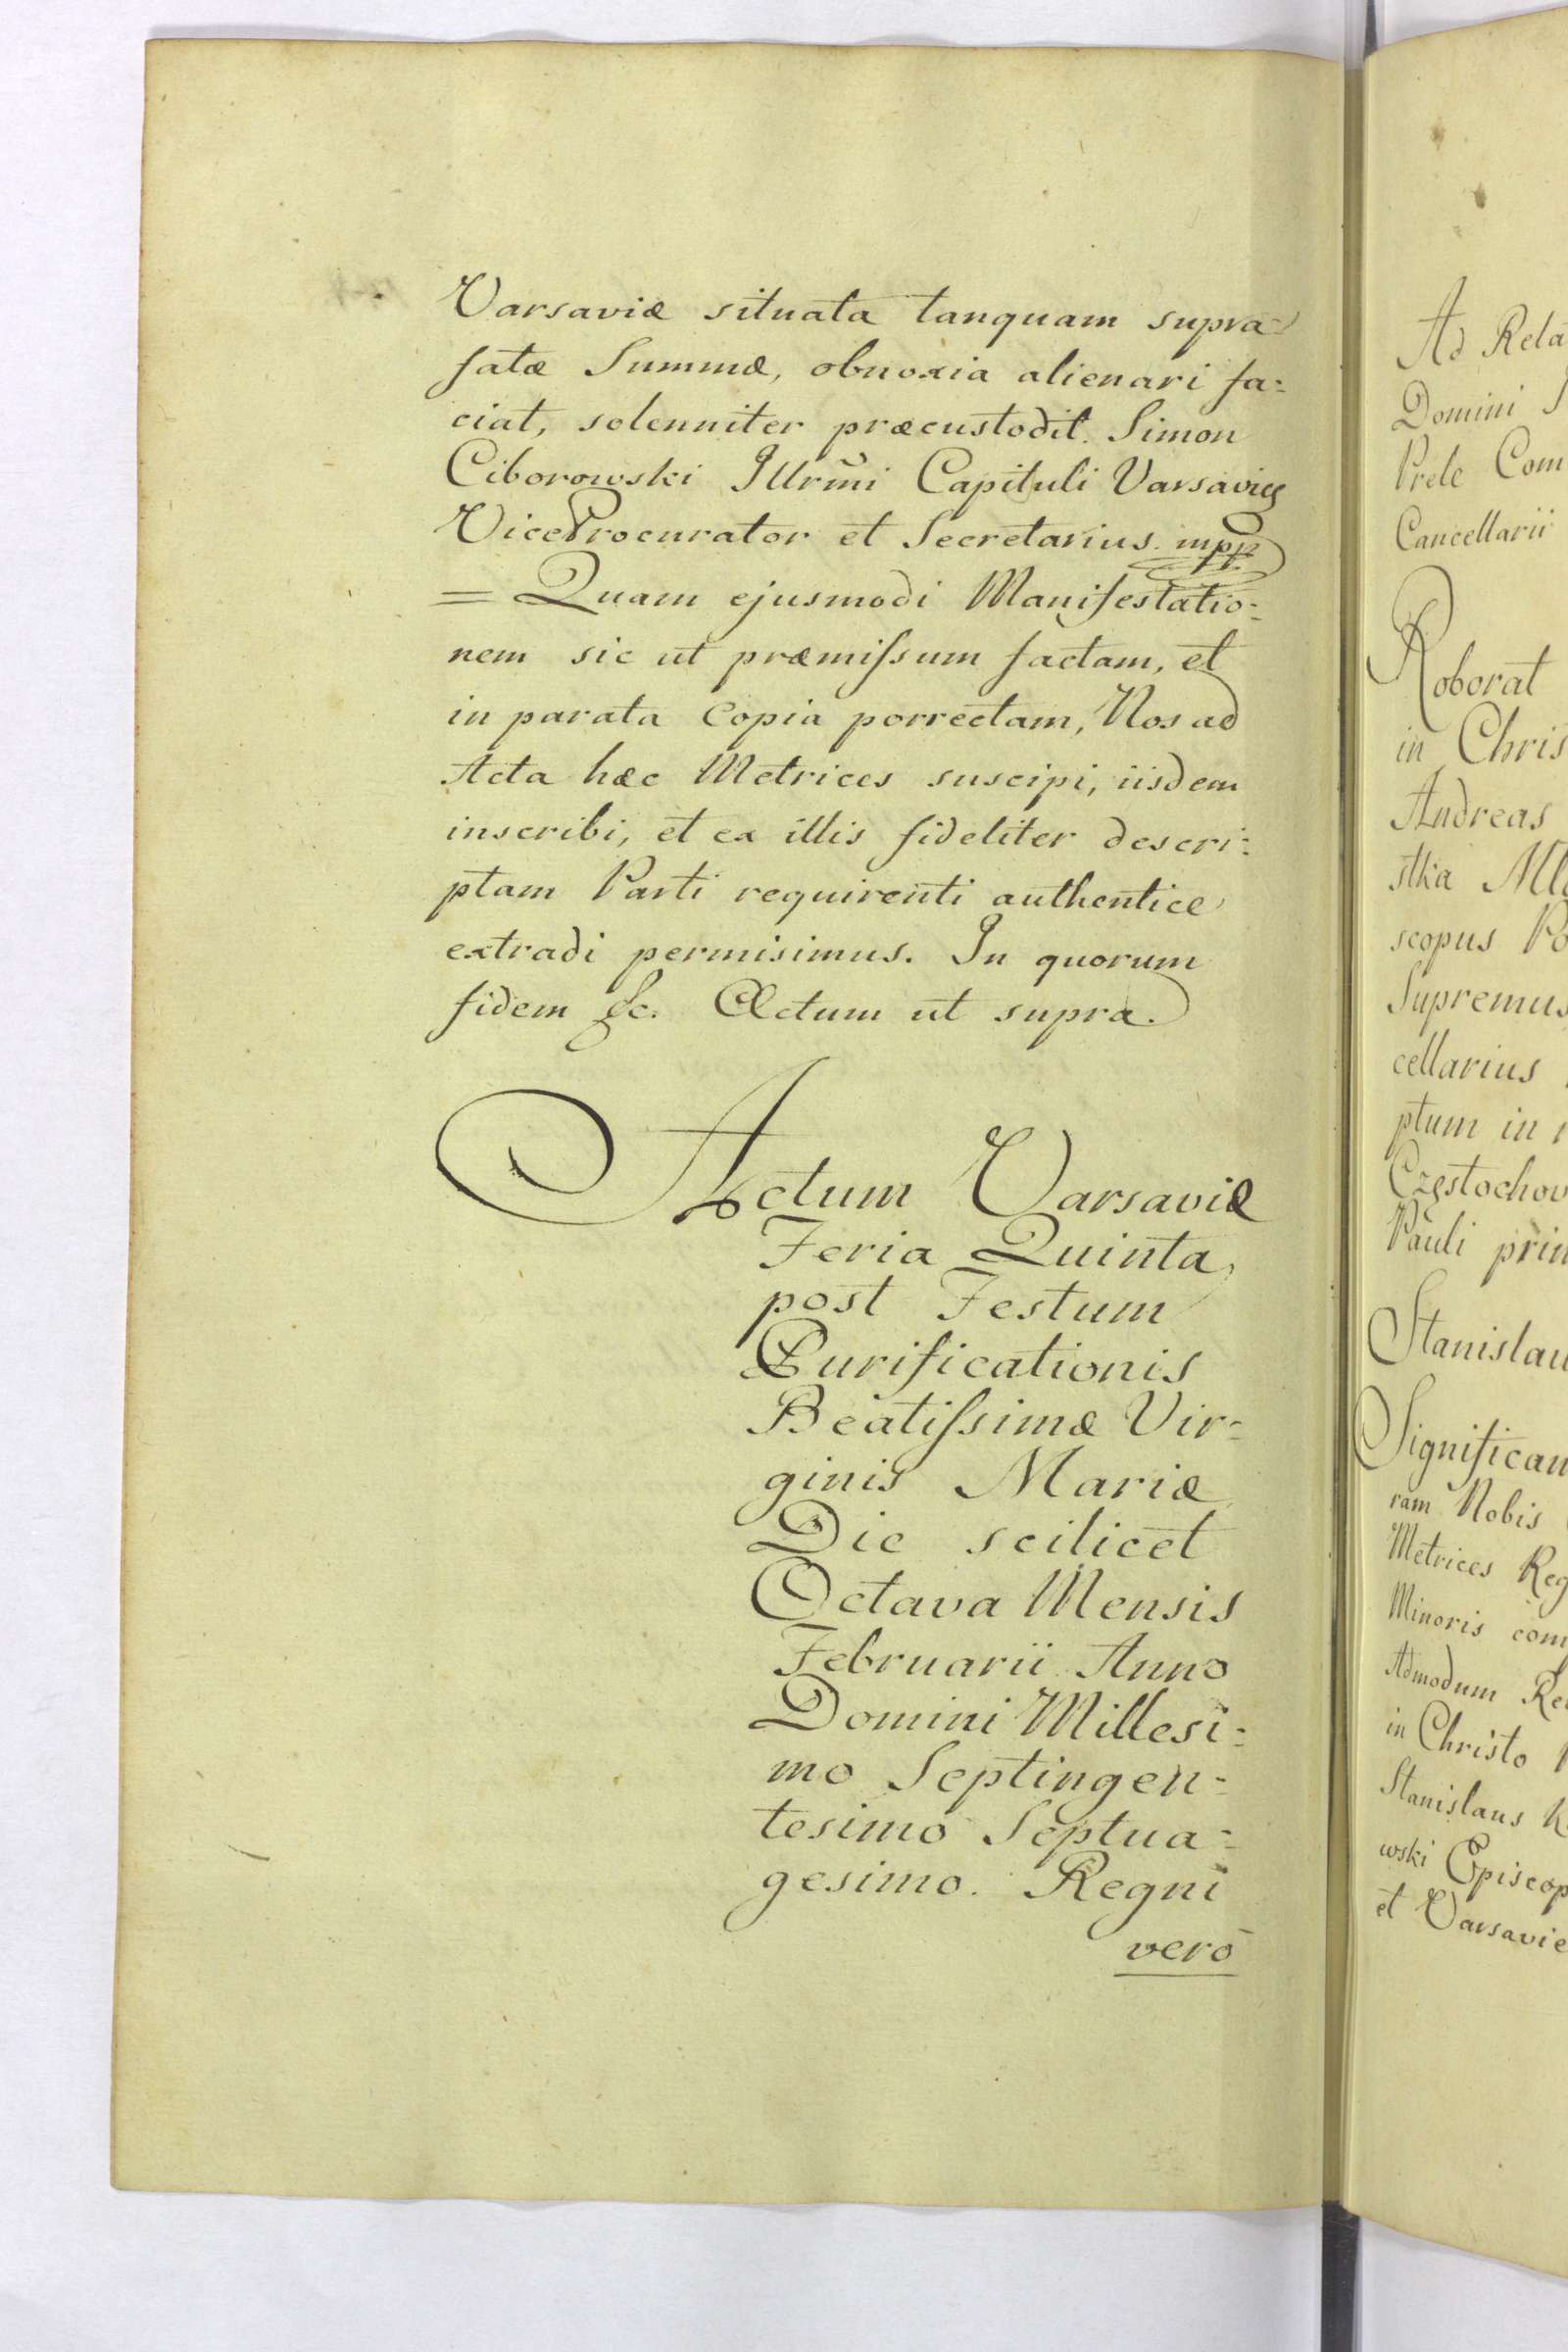 Varsaviæ situata tanquam supra-
fatæ Summæ, obnoxia alienari fa:
ciat, solenniter præcustodit. Simon
Ciborowski Illrm̃i Capituli Varsavieꝫ
ViceProcurator et Secretarius. mpp
= Quam ejusmodi Manifestatio:
nem sic ut præmiſsum factam, et
in parata Copia porrectam, Nos ad
Acta hæc Metrices suscipi, iisdem
inscribi, et ex illis fideliter descri:
ptam Parti requirenti authentice
extradi permisimus. In quorum
fidem &c. Actum ut supra.
Actum Varsaviæ
Feria Quinta
post Festum
Purificationis
Beatiſsimæ Vir-
ginis Mariæ
Die scilicet
Octava Mensis
Februarii Anno
Domini Millesi:
mo Septingen-
tesimo Septua-
gesimo. Regni
verò
Ad Rela
Domini
Prele Com
Cancellarii
Roborat
in Chris
Andreas
stka Mło
scopus Po
Supremus
cellarius
ptum in
Częstochov
Pauli prim
Stanislau
Significam
ram Nobis
Metrices Reg
Minoris com
Admodum Re
in Christo
Stanislaus
wski Episcop
et Varsavie